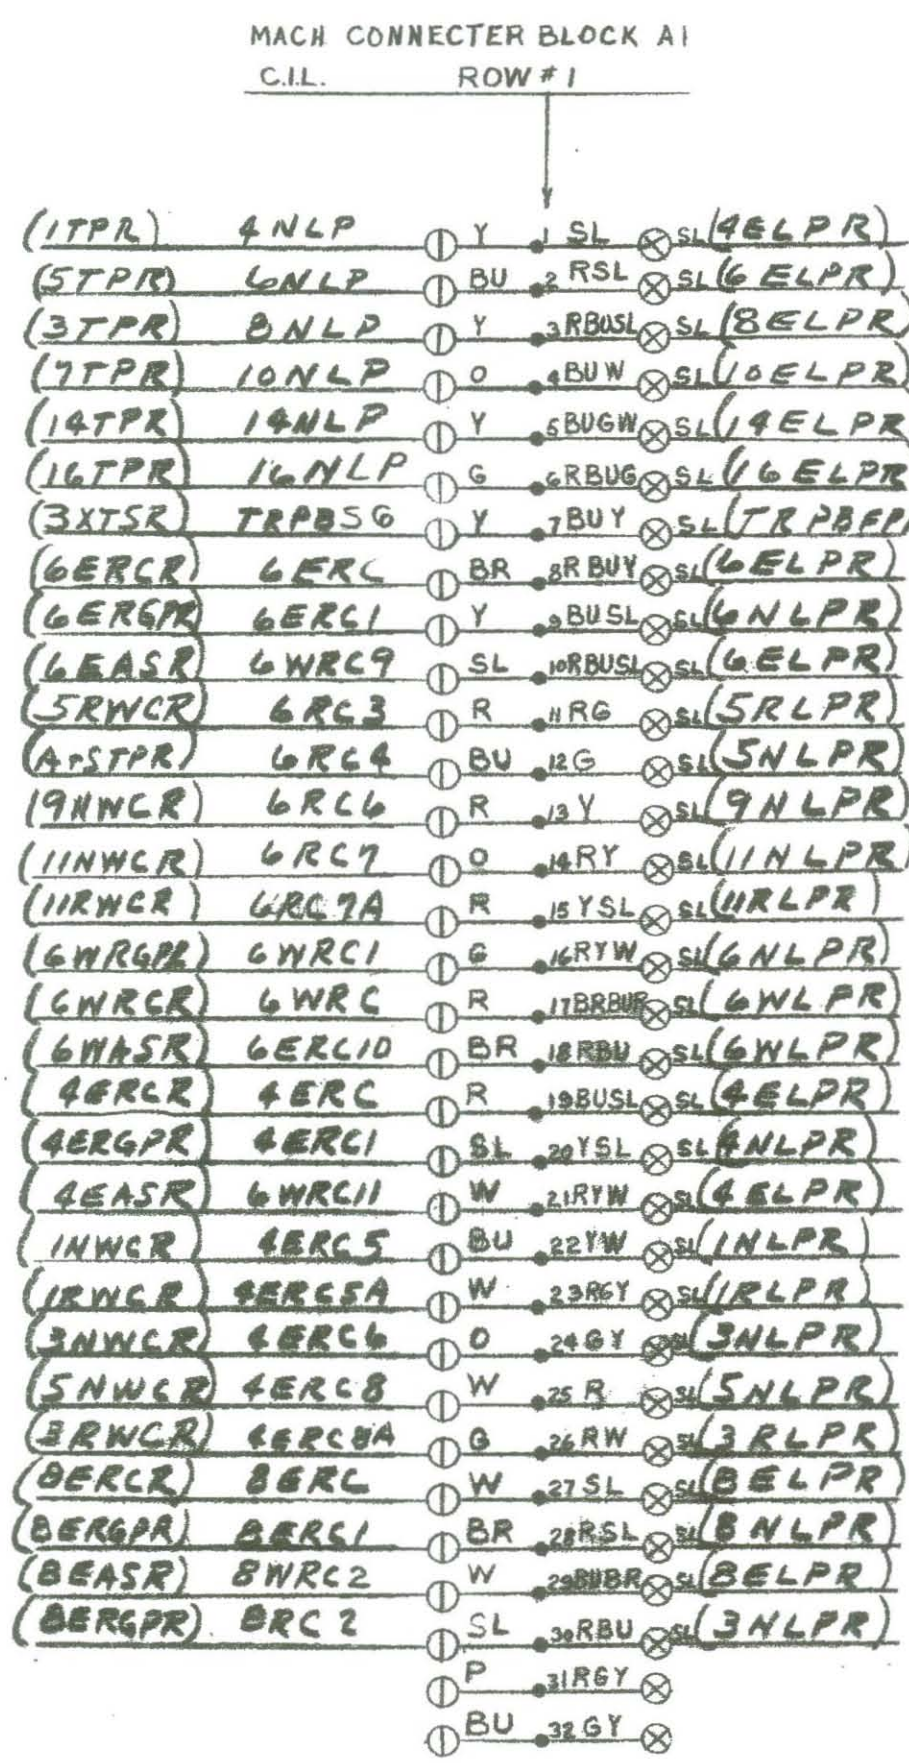 MACH CONNECTER BLOCK A1
C.I.L. ROW #1
(1TPR) 4NLP Y 1 SL SL (4ELPR)
(5TPR) 6NLP BU 2 RSL SL (6ELPR)
(3TPR) 8NLP Y 3 RBUSL SL (8ELPR)
(7TPR) 10NLP O 4 BUW SL (10ELPR)
(14TPR) 14NLP Y 5 BUGW SL (14ELPR
(16TPR) 16NLP G 6 RBUG SL (16ELPR
(3XTSR) TRPBSG Y 7 BUY SL (TRPBFP
(6ERCR) 6ERC BR 8 RBUY SL (6ELPR)
(6ERGPR) 6ERC1 Y 9 BUSL SL (6NLPR)
(6EASR) 6WRC9 SL 10 RBUSL SL (6ELPR)
(5RWCR) 6RC3 R 11 RG SL (5RLPR)
6RC4 BU 12 G SL (5NLPR)
(9NWCR) 6RC6 R 13 Y SL (9NLPR)
(11NWCR) 6RC7 O 14 RY SL (11NLPR)
(11RWCR) 6RC7A R 15 YSL SL (11RLPR)
(6WRGPR) 6WRC1 G 16 RYW SL (6NLPR)
(6WRCR) 6WRC R 17 SL (6WLPR)
(6WASR) 6ERC10 BR 18 RBU SL (6WLPR)
(4ERCR) 4ERC R 19 BUSL SL (4ELPR)
(4ERGPR) 4ERC1 SL 20 YSL SL (4NLPR)
(4EASR) 6WRC11 W 21 RYW SL (4ELPR)
(1NWCR) 4ERC5 BU 22 YW SL (1NLPR)
(1RWCR) 4ERC5A W 23 RGY SL (1RLPR)
(3NWCR) 4ERC6 O 24 GY SL (3NLPR)
(5NWCR) 4ERC8 W 25 R SL (5NLPR)
(3RWCR) 4ERC8A G 26 RW SL (3RLPR)
(8ERCR) 8ERC W 27 SL SL (8ELPR)
(8ERGPR) 8ERC1 BR 28 RSL SL (8NLPR)
(8EASR) 8WRC2 W 29 BUBR SL (8ELPR)
(8ERGPR) 8RC2 SL 30 RBU SL (3NLPR)
P 31 RGY
BU 32 GY